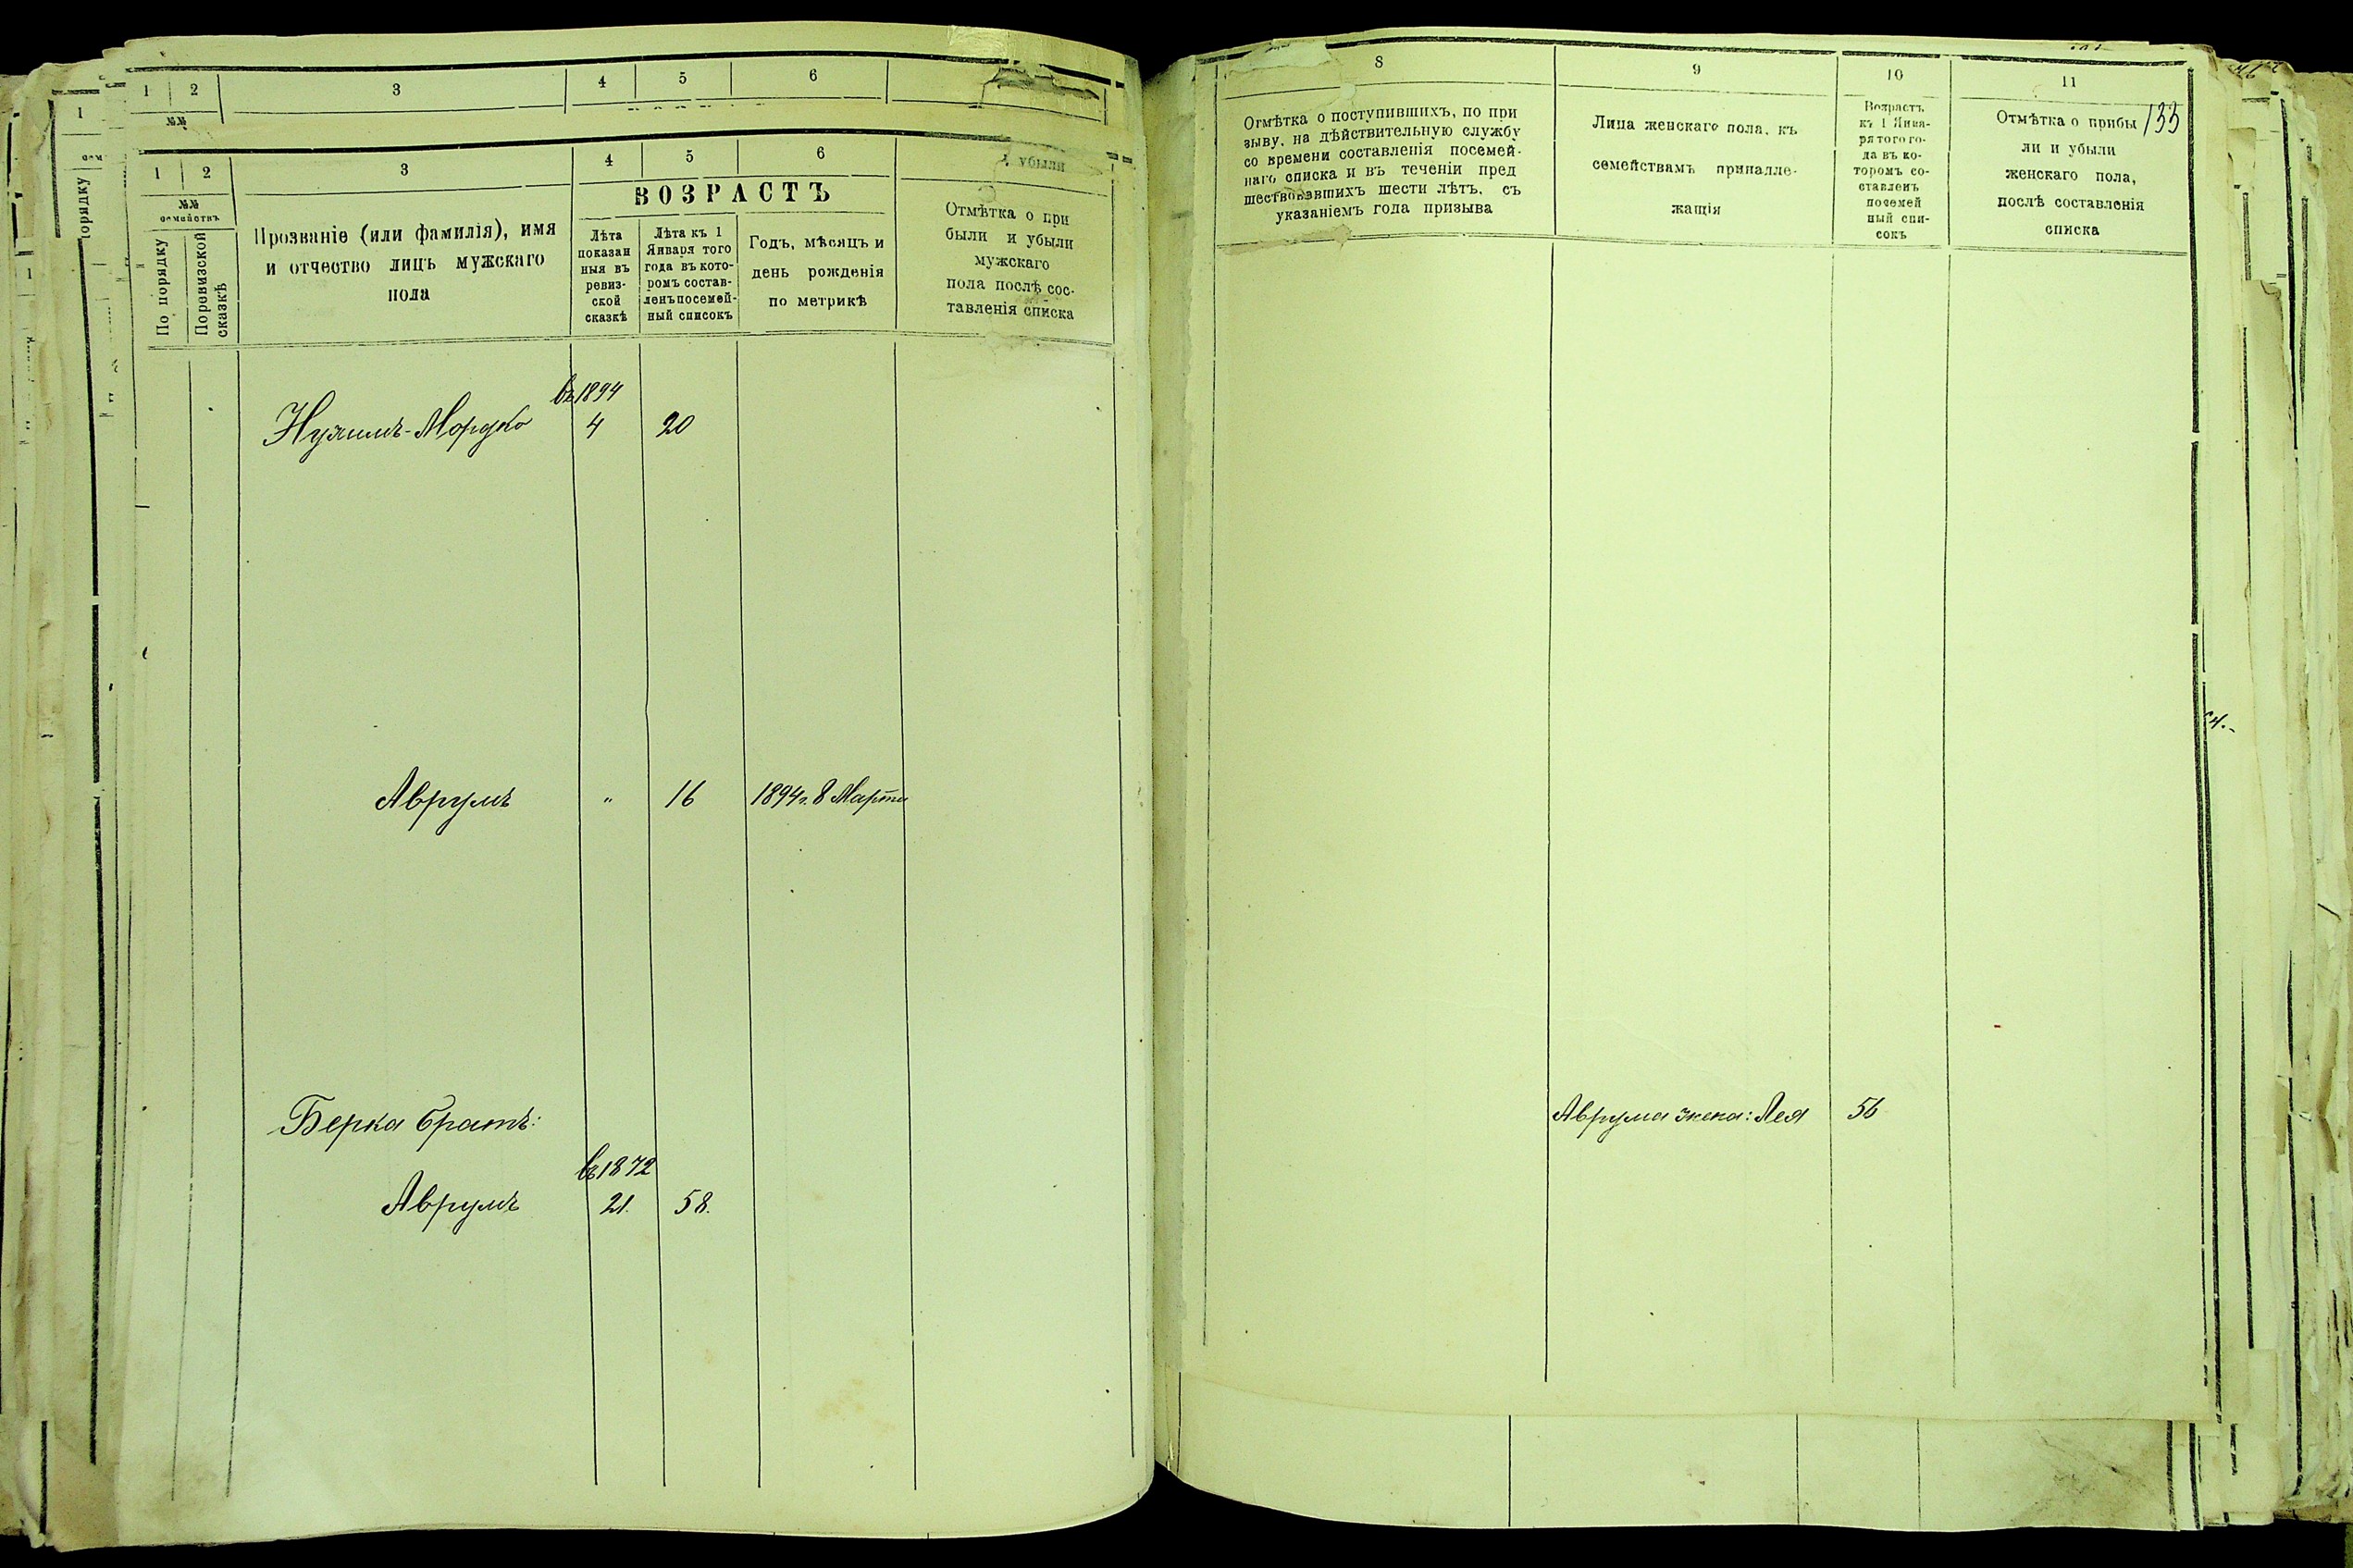 1 2 3 4 5 6
№№
1 2 3 4 5 6
и убыли
№№ семействъ
По порядку
По ревизской сказкѣ
Прозваніе (или фамилія), имя
и отчество лицъ мужскаго
пола
ВОЗРАСТЪ
Лѣта
показан
ныя въ
ревиз-
ской
сказкѣ
Лѣта къ 1
Января того
года въ кото-
ромъ состав-
ленъ посемей-
ный списокъ
Годъ, мѣсяцъ и
день рожденія
по метрикѣ
Отмѣтка о при
были и убыли
мужскаго
пола послѣ сос-
тавленія списка
въ 1894
Нухимъ-Мордко 4 20
Аврумъ " 16 1894 г. 8 Марта
Берка братъ:
въ 1872
Аврумъ 21. 58.
8 9 10 11
133
Отмѣтка о поступившихъ, по при
зыву, на дѣйствительную службу
со времени составленія посемей-
наго списка и въ теченіи пред
шествовавшихъ шести лѣтъ, съ
указаніемъ года призыва
Лица женскаго пола, къ
семействамъ принадле-
жащія
Возрастъ
къ 1 Янва-
ря того го-
да въ ко-
торомъ со-
ставленъ
посемей
ный спи-
сокъ
Отмѣтка о прибы
ли и убыли
женскаго пола,
послѣ составленія
списка
Аврума жена: Лея 56